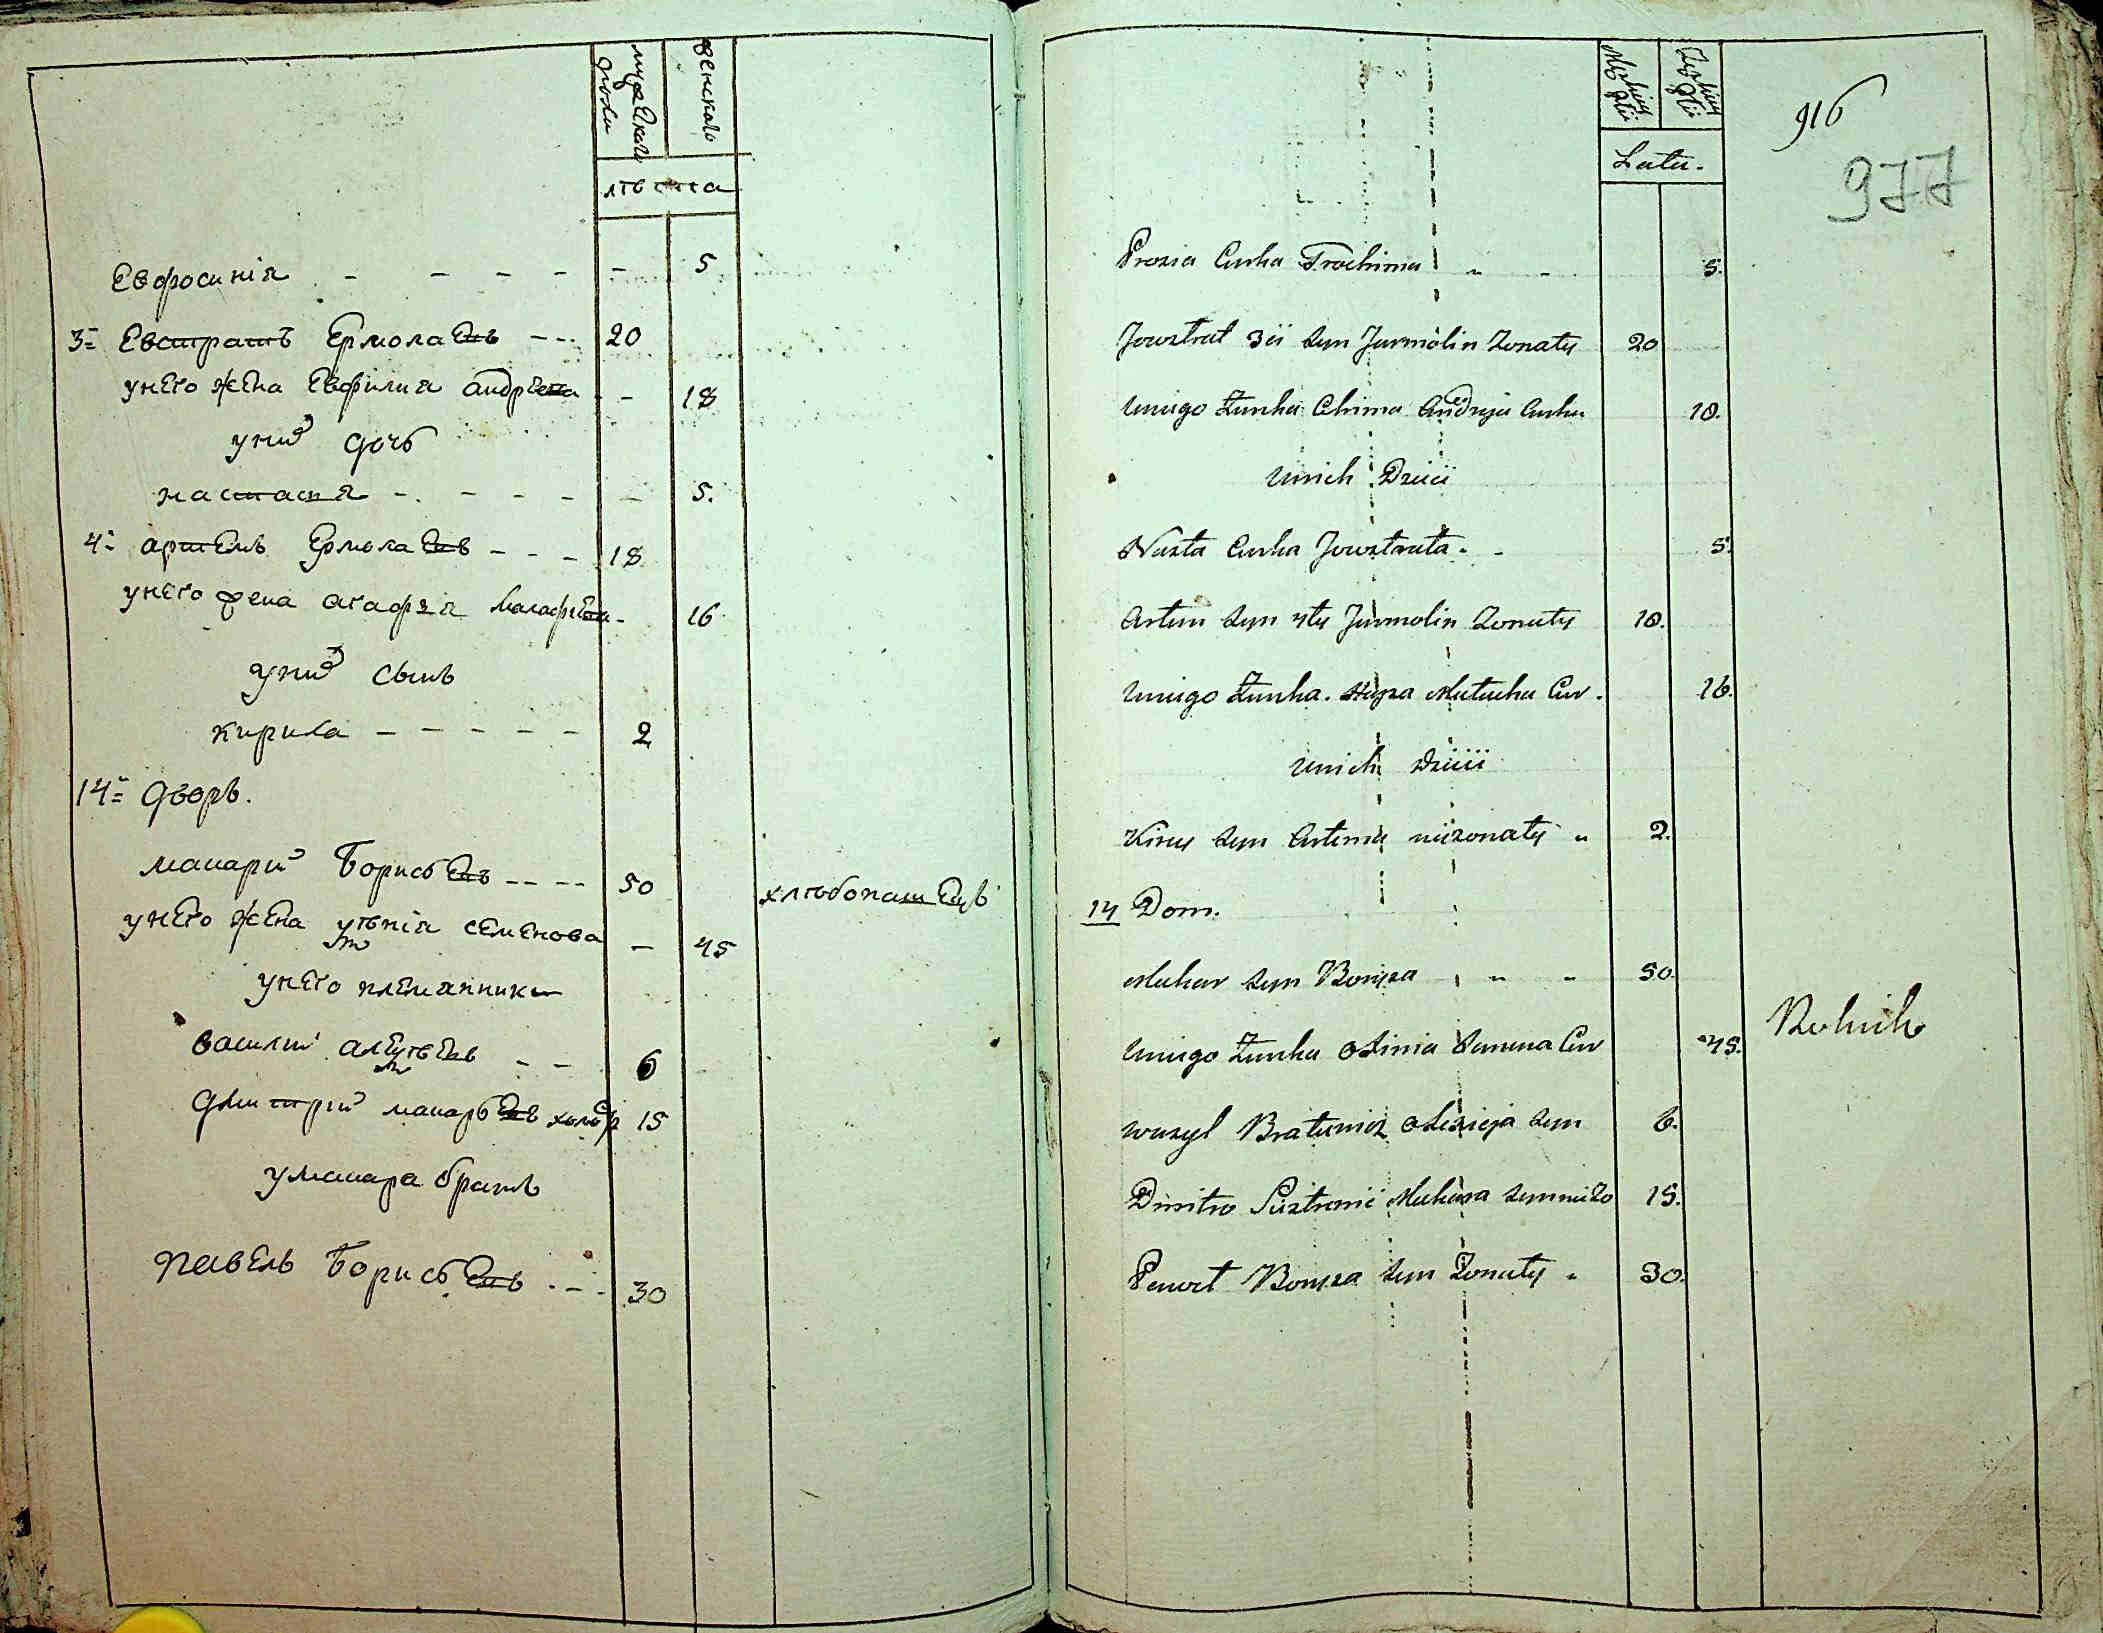 мужеска
полу
женскаго
лѣта
Евфросинія - - - - - 5
3= Евстратъ Ермолаевъ - - - 20
у него жена Евфимия андрѣева - 18
у них дочь
настасия - - - - - 5.
4= артемъ Ермолаевъ - - - 18
у него жена агафия - 16
у них сынъ
кирила - - - - - 2
14= дворъ.
макарий Борисовъ - - - - 50 хлѣбопашецъ
у него жена устинія семенова - 45
у него племянники
василий алексѣевъ - - 6
дмитрий макаровъ 15
у макара братъ
павелъ Борисовъ - - - 30
916
977
Latu.
Prosia Curka Trochima " - 5.
Jowstrat 3ii syn Jarmolin Zonaty 20
Uniego Zunka Chima Andryja Curka 18.
Unich Dzieci
Nasta Curka Jowstrata. - 5.
Artem syn 4ty Jarmolin Zonaty 18.
Uniego Zunka. Cur. 16.
Unich Dzieci
Kiryy syn Artema niezonaty " 2.
14 Dom.
Makar syn Borysa " " 50.
Uniego Zunka Ostinia Samena Cur 45. Rolnik
Wasyl Bratunicz Olexieja syn 6.
Dmitro Makara syn 15.
Pawet Borysa syn Zonaty " 30.